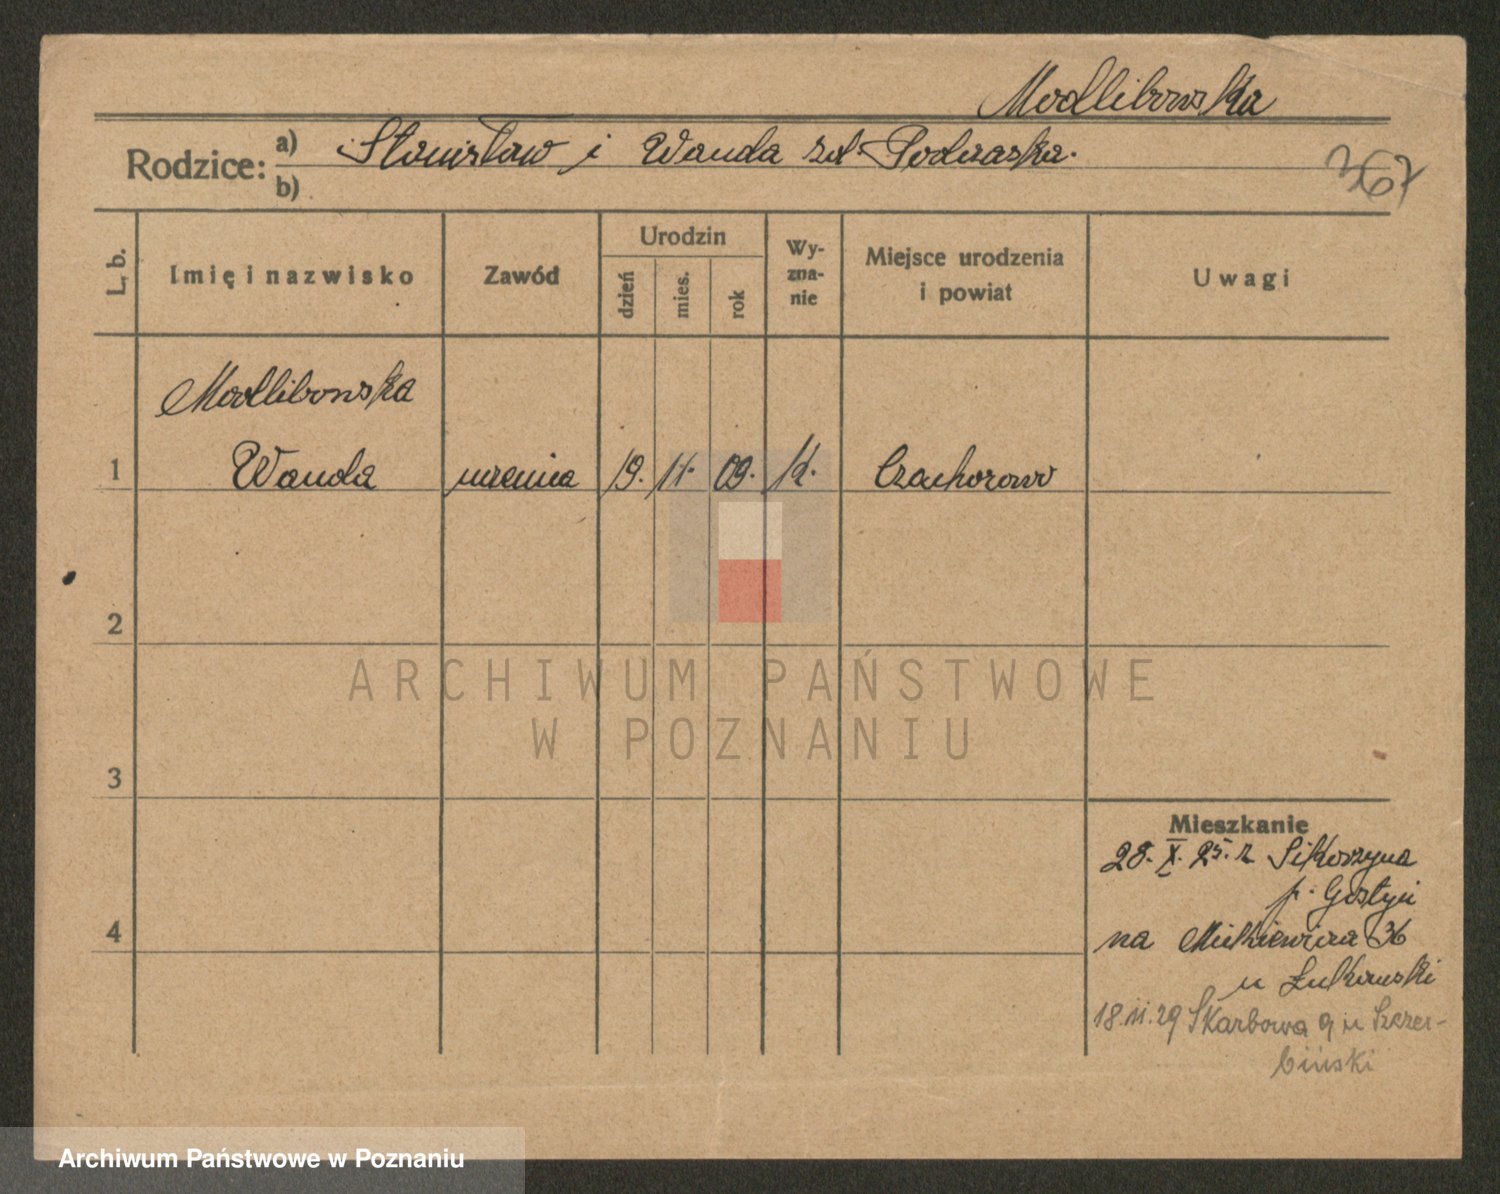 Modlibowska
Rodzice: a) Stanisław i Wanda zd. Podczaska.
b)
367
L. b.
Imię i nazwisko
Zawód
Urodzin
dzień
mies.
rok
Wy-
zna-
nie
Miejsce urodzenia
i powiat
Uwagi
Modlibowska
1 Wanda uczenica 19. 11. 09. rk. Czachorowo
2
3
4
Mieszkanie
28. X. 25. r. Sikorzyna
p. Gostyń
na Mickiewicza 36
u Łukomski
18.11.29 Skarbowa 9 u Szczer-
biński
ARCHIWUM PAŃSTWOWE
W POZNANIU
Archiwum Państwowe w Poznaniu